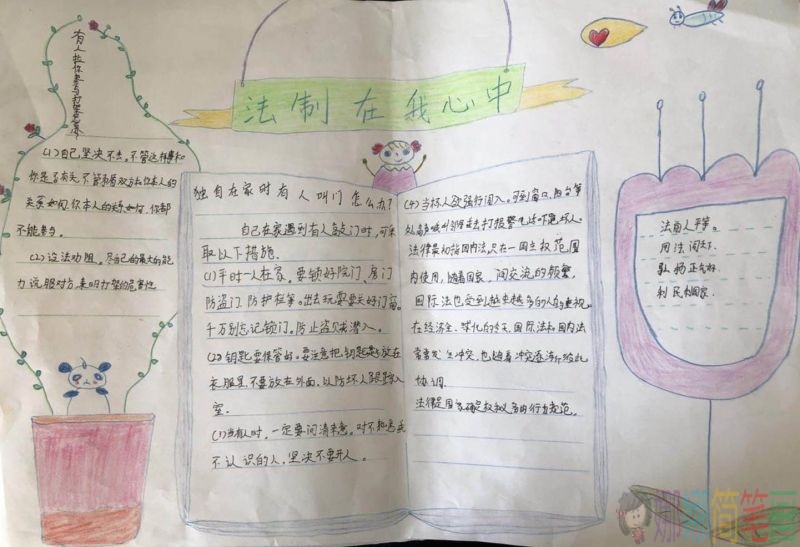 法制在我心中
有人拉你参与打架怎么办?
(1)自己坚决不去。不管这件事和
你是否有关,不管和双方你本人的
关系如何,你都
不能参与。
(2)设法劝阻。尽自己的最大的能
力说服对方,表明打架的危害性
独自在家时有人叫门怎么办?
自己在家遇到有人敲门时,可采
取以下措施.
(1)平时一人在家。要锁好院门、房门
防盗门、防护栏等。出去玩耍要关好门窗。
千万别忘记锁门。防止盗贼潜入。
(2)钥匙要保管好。要注意把钥匙放在
衣服里,不要放在外面,以防坏人跟踪入
室.
有人时,一定要问清来意。对不知
不认识的人,坚决不要开人。
(4)当坏人欲强行闯入。可到窗口、阳台等
处高声喊叫打报警也吓跑坏人.
法律最初指国内法,只在一国主权范围
内使用,随着国家间交流的频繁,
国际法也受到越来越多的人的重视.
国际法和国内法
常常发生冲突,也随着冲突逐渐
协调.
法律是国家确定权利义务的行为规范。
法面人平等。
民和国家.
娜娜简笔画